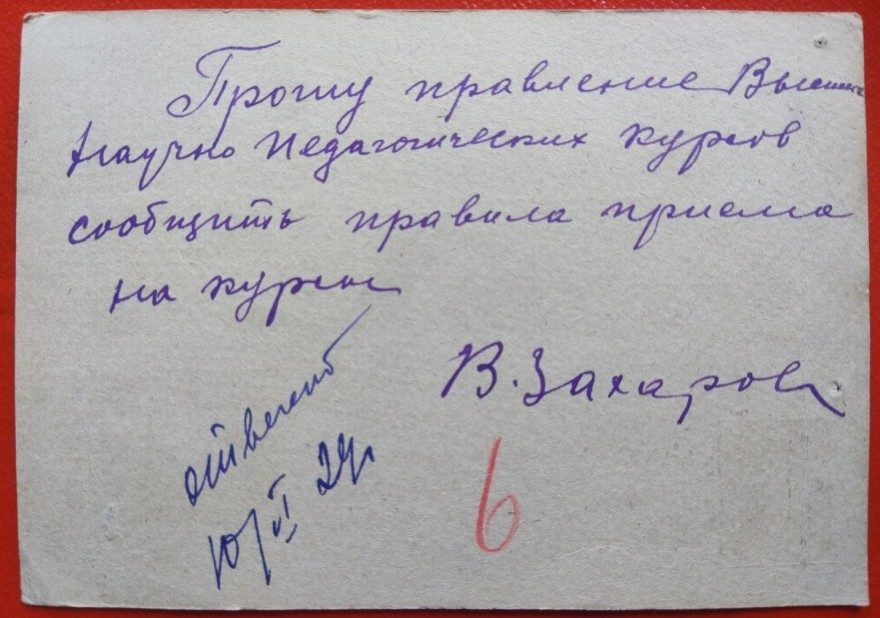 Прошу правление Высших
Научно Педагогических Курсов
сообщить правила приема
на курсы
В. Захаров
отвечено
10/VI 29г.
6